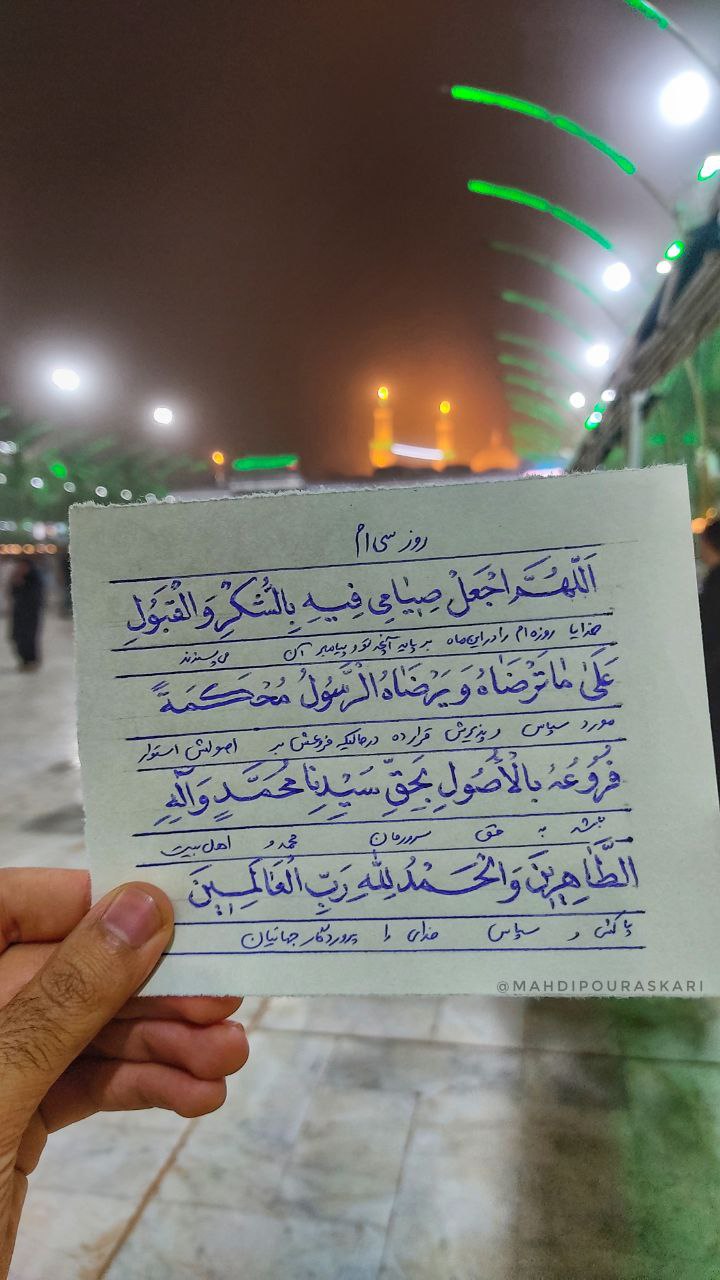 روز سی ام
اَللّهُمَّ اجْعَلْ صِیٰامِی فِیهِ بِالشُّکْرِ وَ الْقَبُولِ
خدایا روزه ام را در این ماه بر پایه آنچه تو و پیامبر آن می پسندند
عَلیٰ مٰا تَرْضَاهُ وَ یَرْضَاهُ الْرَّسُولُ مُحْکَمَةً
مورد سپاس و پذیرش قرار ده درحالیکه فروعش بر اصولش استوار
فُرُوُعُهُ بِالْاُصُولِ بِحَقِّ سَیِّدِنٰا مُحَمَّدٍ وَ آلِهِ
باشد به حق سرورمان محمد و اهل بیت
الطَّاهِرِینَ وَ الْحَمْدُ لِلّٰهِ رَبِّ الْعَالَمِینَ
پاکش و سپاس خدای را پروردگار جهانیان
@MAHDIPOURASKARI